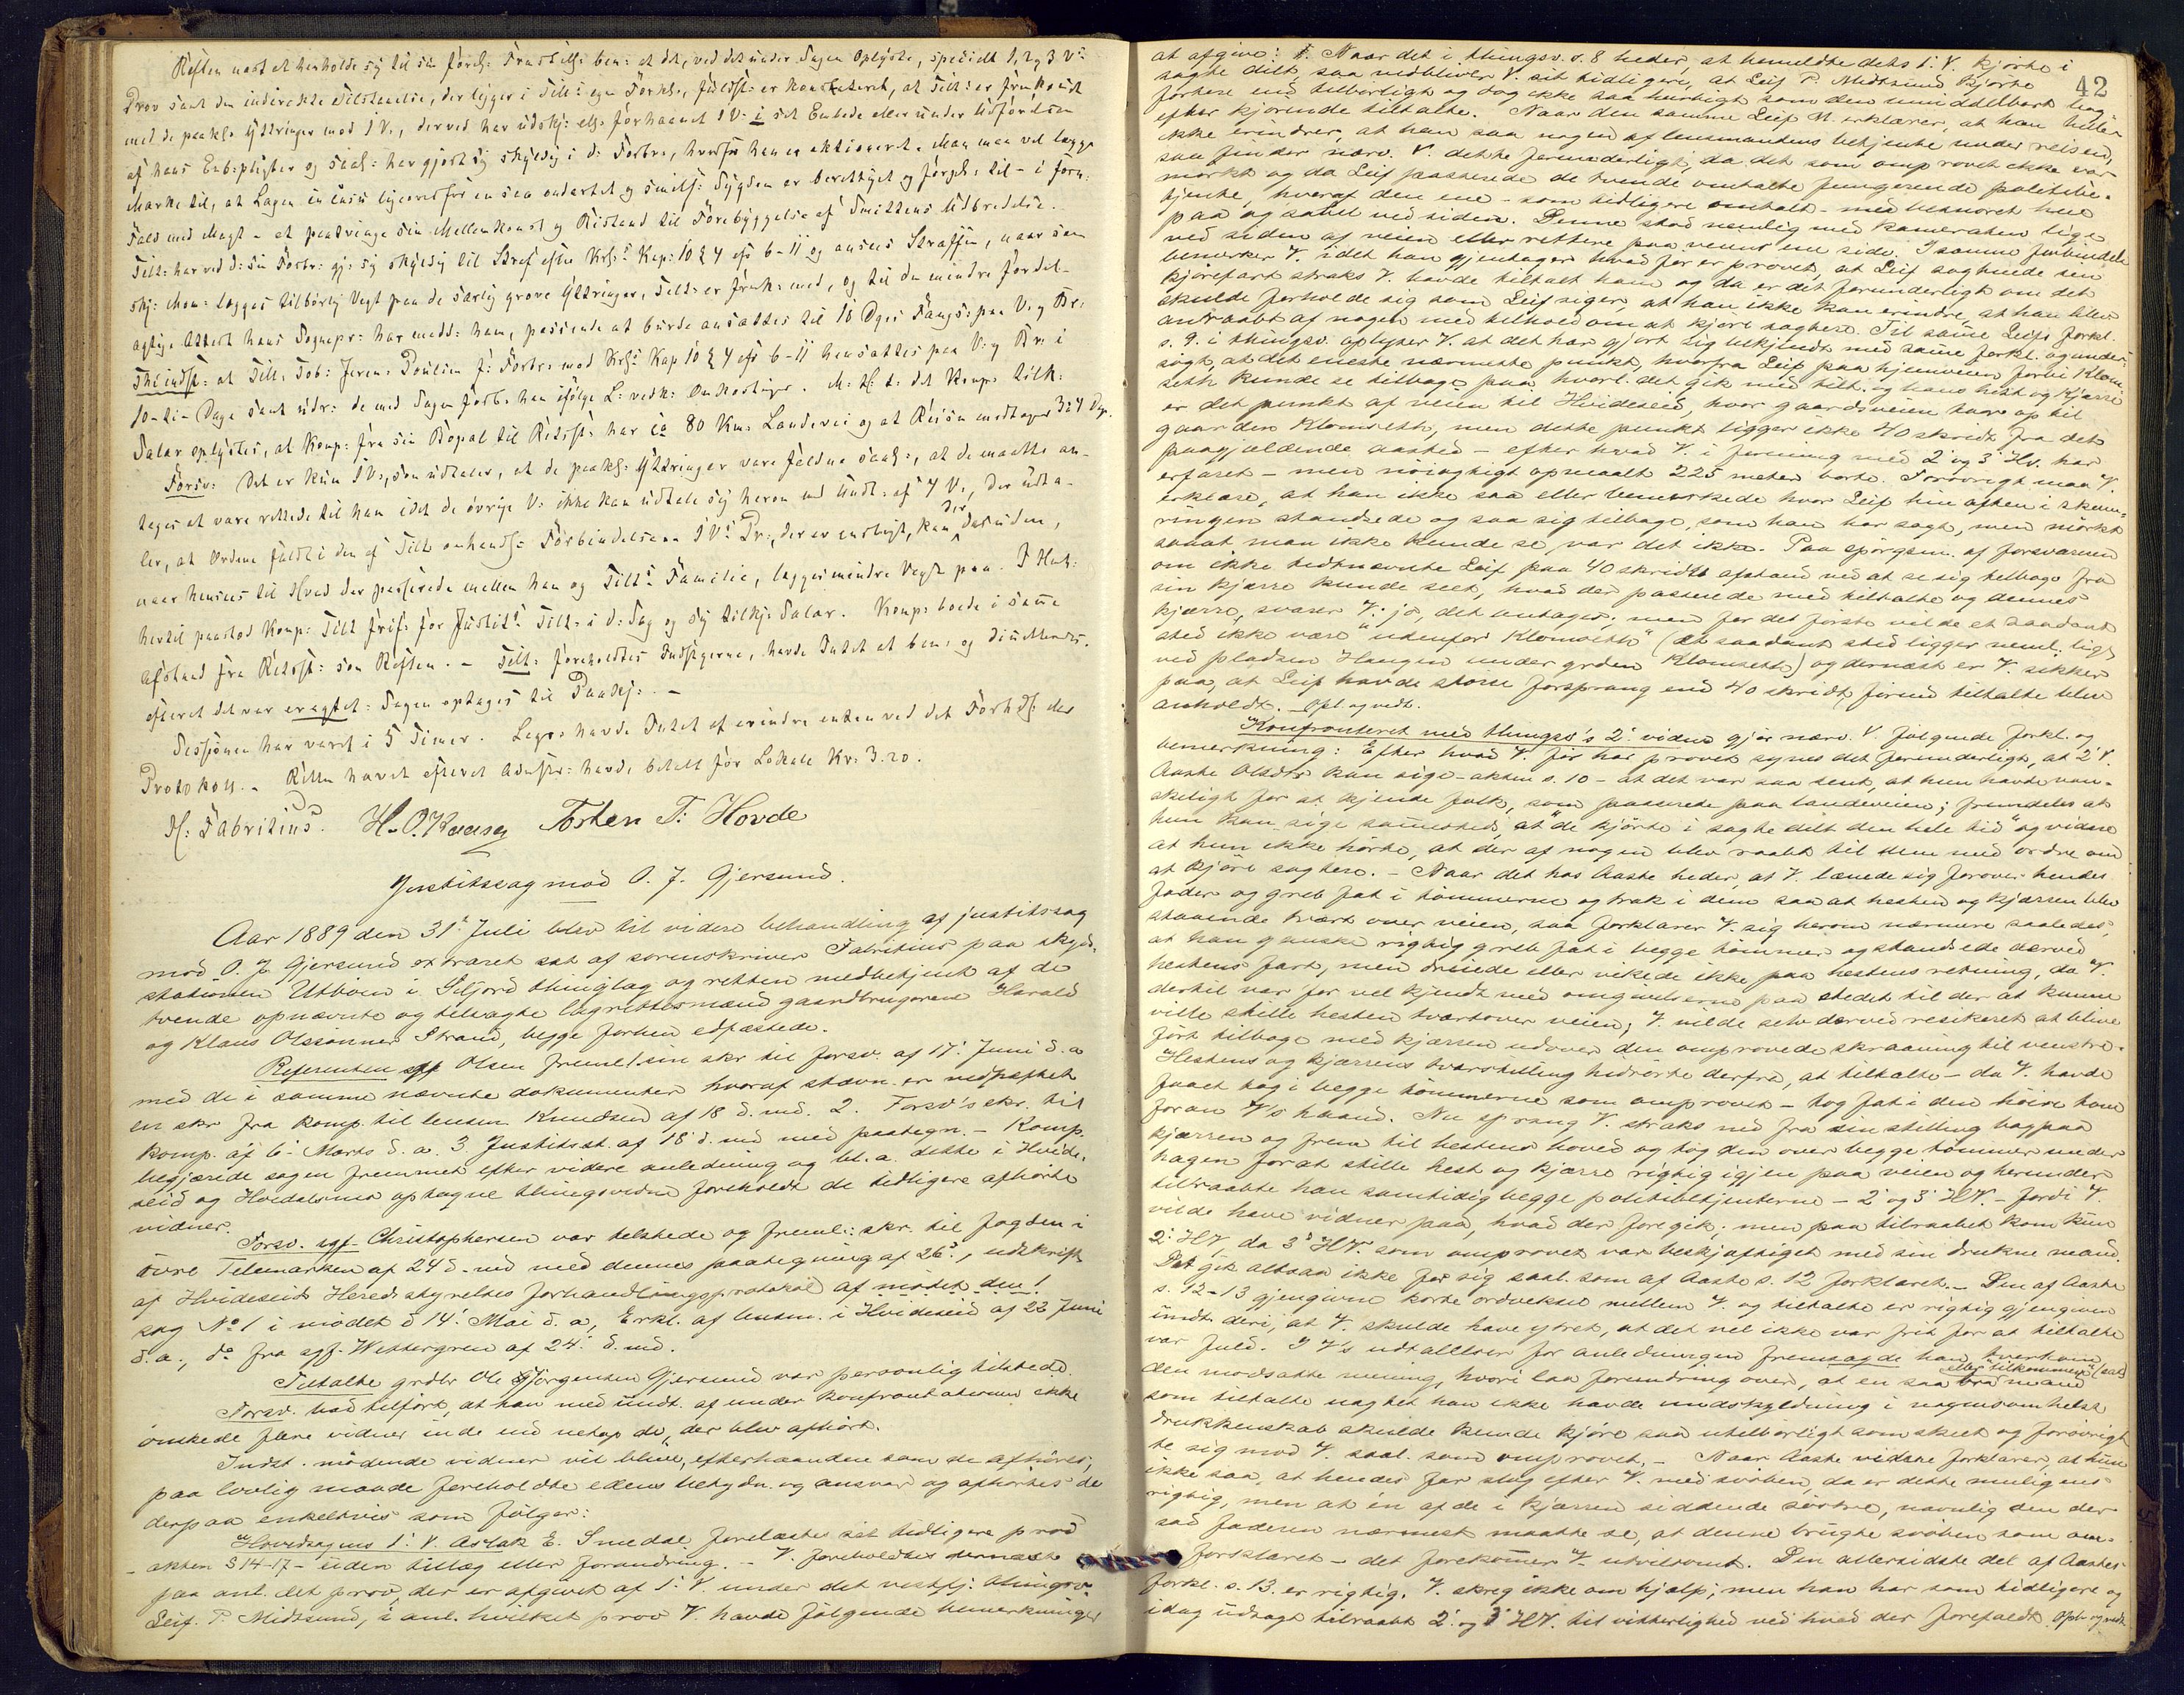 Reften næst at henholde sig til sin förels: Fremstill: bem: at det, ved det under Sagen Oplyste, specielt 1, 2 og 3 V:s
Prov samt den indirekte Tilstaaelse, der ligger i Tilt:s egen Forkl:, fuldst: er konstateret, at Tilt: er fremkommet
med de paakl: Yttringer mod 1 V., derved har udskj: ell: forhaanet 1 V: i sit Embede eller under Udförelsen
af hans Emb:spligter og saal: har gjort sig skyldig i d: Forbr:, hvorfor han er aktioneret. Man maa vel lægge
Mærke til, at Lægen in casu ligeoverfor en saa ondartet og smits: Sygdom er berettiget og forpl: til - i forn:
Fald med Magt - at paatvinge sin Mellemkomst og Bistand til Forebyggelse af Smittens Udbredelse.
Tilt: har ved d: sin Forbr: gj: sig skyldig til Straf efter Krl:s Kap: 10 § 4 cfr 6-11 og ansees Straffen, naar som
skj: Mom: lægges tilbörlig Vægt paa de særlig grove Yttringer, Tilt: er fremk: med, og til den mindre fordel-
agtige Attest hans Sognepr: har medd: ham, passende at burde ansættes til 10 Dages Fængs: paa V. og Br:
Thi indst: at Tilt: Tob: Jeren: Poulsen f: Forbr: mod Krl:s Kap 10 § 4 cfr 6-11 hensættes paa V: og Br: i
10 - ti - Dage samt udr: de med Sagen forb: ham ifölge L: vedk: Omkostninger. M: H: t: det Komp: tilk:
Salær oplystes, at Komp: fra sin Bopæl til Retsst: har ca 80 Km: Landevei og at Reisen medtager 3 à 4 Dge.
Forsv: Det er kun 1 V:, som udtaler, at de paakl: Yttringer vare faldne saal:, at de maatte an-
tages at være rettede til ham idet de övrige V: ikke kan udtale sig herom med Undt: af 4 V:, der udta-
ler, at Ordene faldt i den af Tilt: omhandl: Forbindelse. 1 V:s Pr:, der er ensligt, kan der desuden,
naar hensees til Hvad der passerede mellem ham og Tilt:s Familie, lægges mindre Vægt paa. I Henh:
hertil paastod Komp: Tilt frif: for Justits:s Tilt: i d: Sag og sig tilkj: Salær. Komp: boede i samme
Afstand fra Retsst: som Reften. - Tilt: foreholdtes Indlæggene, havde Intet at bem: og dimitteredes,
efteret det var eragtet: Sagen optages til Paakj: -
Sessionen har varet i 5 Timer. Lagr: havde Intet at erindre enten ved det Forhdl: eller
Protokoll. - Retten hævet efteret Adm: havde betalt for Lokale Kr: 3.20.
H: Fabritius. H. O. Torsten T: Hovde
Justitssag mod O. J. Gjersund.
Aar 1889 den 31te Juli blev til videre behandling af justitssag
mod O. J. Gjersund extraret sat af sorenskriver Fabritius paa skyds-
stationen Utboen i Seljord thinglag og retten medbetjent af de
tvende opnævnte og tilvagte lagrettesmænd gaardbrugerne Harald
og Klaus Olssönner Strand, begge forhen edfæstede.
Referenten sgf. Olsen freml. sin skr. til forsv. af 17de Juni d. a.
med de i samme nævnte dokumenter hvoraf stævn. er vedhæftet
en skr fra komp. til lensm. Knudsen af 18 d. md. 2. Forsv's skr. til
komp. af 6te Marts d. a. 3 Justitsst. af 18 d. md med paategn. - Komp.
begjærede sagen fremmet efter videre anledning og bl. a. dette i Hvide-
seid og Hvidalsmo optagne thingsvidne foreholdt de tidligere afhörte
vidner.
Forsv. sgf. Christophersen var tilstede og freml: skr. til fogden i
övre Telemarken af 24 d. md med dennes paategning af 26de, udskrift
af Hvideseids Heredsstyrelses forhandlingsprotokol af mödet den
sag No 1 i mödet d 14de Mai d. a., Erkl. af lensm. i Hvideseid af 22 Juni
d. a., do fra sgf. Wettergren af 24de d. md.
Tiltalte grdbr Ole Jörgensen Gjersund var personlig tilstede.
Forsv. bad tilfört, at han med undt. af under konfrontationen ikke
önskede flere vidner inde end netop de, der blev afhört.
Indst. mödende vidner vil blive, efterhaanden som de afhöres,
paa lovlig maade foreholdte edens betydn. og ansvar og afhörtes de
derpaa enkeltvis som fölger:
Hovedsagens 1te V. Aslak E. Smedal forelæstes sit tidligere prov
- akten S 14-17 - uden tillæg eller forandring. - V. foreholdtes dernæst
paa anl. det prov, der er afgivet af 1te V. under det vestfj. thingsv.
Leif. P. Midtsund, i anl. hvilket prov V. havde fölgende bemerkninger
42
at afgive: Naar det i thingsv. s. 8 heder, at bemeldte dets 1te V. kjörte i
sagte dilt, saa vedbliver V. sit tidligere, at Leif P. Midtsund kjörte
fortere end tilbörligt og dog ikke saa hurtigt som den umiddelbart bag
efter kjörende tiltalte. Naar den samme Leif M. erklærer, at han heller
ikke erindrer, at han saa nogen af lensmandens betjente under reisen,
saa finder nærv. V. dette forunderligt, da det som omprovet ikke var
mörkt og da Leif passerede de tvende omtalte fungerende politibe-
tjente, hvoraf den ene - som tidligere omtalt - med besnoret hue
paa og sabel ved siden. Denne stod nemlig med kameraten lige
ved siden af veien eller rettere paa veiens ene side. I samme forbindelse
bemerker V. idet han gjentager hvad før er provet, at Leif sagtnede sin
kjörefart straks V. havde tiltalt ham og da er det forunderligt om det
skulde forholde sig som Leif siger, at han ikke kan erindre, at han blev
antraabt af nogen med tilhold om at kjöre sagtere. Til samme Leifs forkl.
s. 9. i thingsv. oplyser V. at det har gjort sig bekjendt med samme forkl. og under-
sögt, at det eneste nærmeste punkt, hvorfra Leif paa hjemveien forbi Klom-
seth kunde se tilbage paa, hvorl. det gik med tilt. og hans hest og kjærre
er det punkt af veien til Hvideseid, hvor gaardsveien tarer op til
gaarden Klomseth, men dette punkt ligger ikke 40 skridt fra det
paagjældende aasted - efter hvad V. i forening med 2de og 3de Hv. har
erfaret - men nöiagtigt opmaalt 225 meter borte. Forövrigt maa V.
erklære, at han ikke saa eller bemerkede hvor Leif hin aften i skum-
ringen standsede og saa sig tilbage, som han har sagt, men mörkt
saaat man ikke kunde se, var det ikke. Paa spörgsm. af forsvareren
om ikke tidtnævnte Leif paa 40 skridts afstand ved at se sig tilbage fra
sin kjærre kunde seet, hvad der passerede med tiltalte og dennes
kjærre, svarer V. jo, det antager, men for det förste vilde et saadant
sted ikke være "udenfor Klomseth" (et saadant sted ligger neml. lige
ved pladsen Haugen under grden Klomseth) og dernæst er V. sikker
paa, at Leif havde större forsprang end 40 skridt, förend tiltalte blev
anholdt. - Opl. og vedt.
Konfronteret med thingsv's 2de vidne gjör nærv. V. fölgende forkl. og
bemerkning: Efter hvad V. för har provet synes det forunderligt, at 2de V.
Aaste Olsdtr kan sige - akten s. 10 - at det var saa sent, at hun havde van-
skeligt for at kjende folk, som passerede paa landeveien; fremdeles at
hun kan sige sammesteds, at "de kjörte i sagte dilt den hele tid" og videre
at hun ikke hörte, at der af nogen blev raabt til dem med ordre om
at kjöre sagtere. - Naar det hos Aaste heder, at V. lænede sig forover hendes
fader og greb fat i tömmerne og trak i dem saa at hesten og kjærren blev
staaende tvært over veien, saa forklarer V. sig herom nærmere saaledes,
at han ganske rigtig greb fat i begge tömmer og standsede derved
hestens fart, men dreiede eller vikede ikke paa hestens retning, da V.
dertil var for vel kjendt med omgivelserne paa stedet til der at kunne
ville stille hesten tvertover veien; V. vilde selv derved resikeret at blive
fört tilbage med kjærren udover den omprovede skraaning til venstre.
Hestens og kjærrens tværstilling hidrörte derfra, at tiltalte - da V. havde
faaet tag i begge tömmerne som omprovet - tog fat i den höire töm
foran V's haand. Nu sprang V. straks ned fra sin stilling bagpaa
kjærren og frem til hestens hoved og tog den over begge tömmer under
hagen for at stille hest og kjærre rigtig igjen paa veien og herunder
tilraabte han samtidig begge politibetjenterne - 2de og 3de HV. - fordi V.
vilde have vidner paa, hvad der foregik; men paa tilraabet kom kun
2de HV, da 3de HV. som omprovet var beskjæftiget med sin drukne mand.
Det gik altsaa ikke for sig saal. som af Aaste s. 12 forklaret. - Den af Aaste
s. 12-13 gjengivne korte ordveksel mellem V. og tiltalte er rigtig gjengiven
undt. deri, at V. skulde have ytret, at det vel ikke var frit for at tiltalte
var fuld. I V's udtalelser for anledningen fremsagde han tvertom
den modsatte mening, hvori laa forundring over, at en saa bra eller "tilkommen" mand
som tiltalte uagtet han ikke havde undskyldning i nogensomhelst
drukkenskab skulde kunde kjöre saa utilbörligt som skeet og forövrigt
te sig mod V. saal. som omprovet. - Naar Aaste videre forklarer, at hun
ikke saa, at hendes far slog efter V. med svöben, da er dette muligens
rigtig, men at én af de i kjærren siddende söstre, navnlig den der
sad faderen nærmest maatte se, at denne brugte svöben som om-
forklaret - det forekommer V. utvilsomt. Den allersidste del af Aastes
forkl. s. 13. er rigtig. V. skreg ikke om hjælp; men han har som tidligere og
idag udsagt tilraabt 2de og 3de HV. til vitterlighed ved hvad der forefaldt. Opl. og vedt.